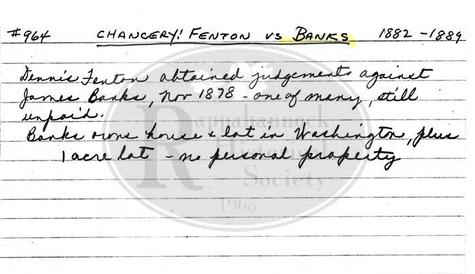 #964 CHANCERY: FENTON VS BANKS 1882-1889
Dennis Fenton obtained judgements against
James Banks, Nov 1878 - one of many, still
unpaid.
Banks owns house & lot in Washington, plus
1 acre lot - no personal property
Rappahannock
Historical
Society
1965